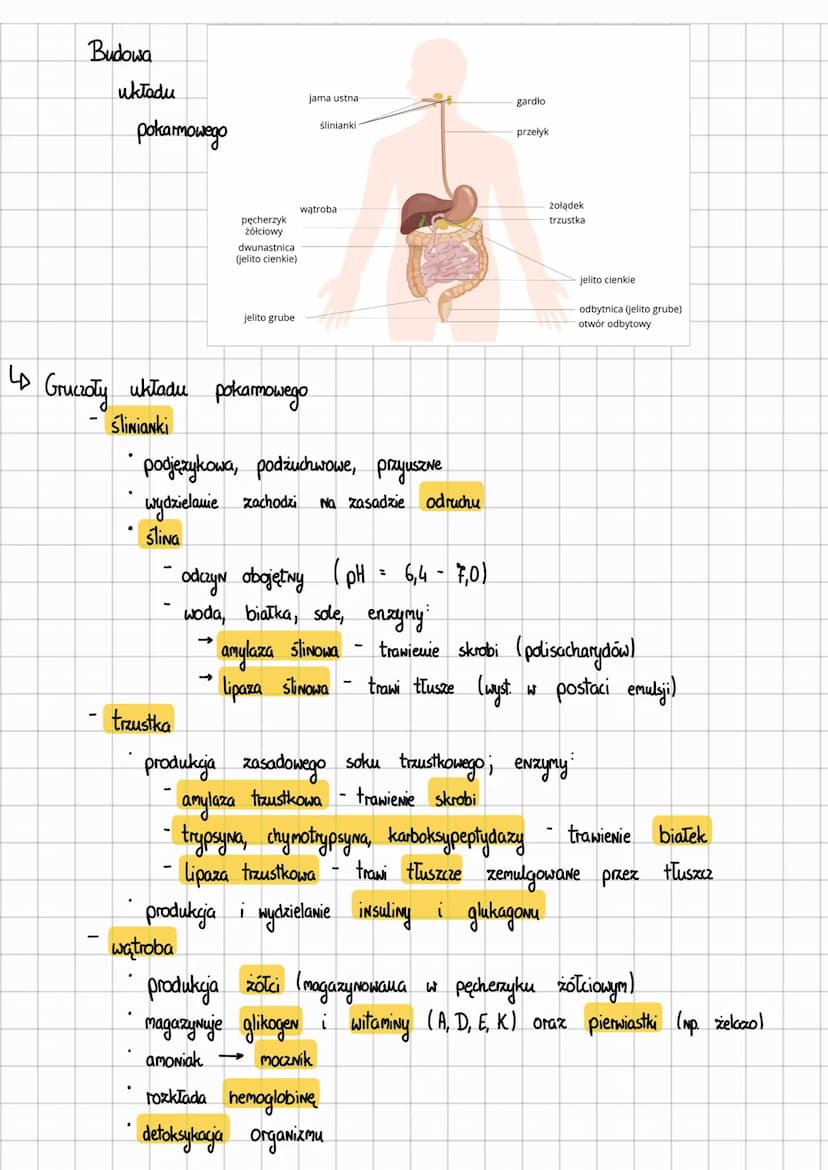 Budowa
układu
pokarmowego
jama ustna
ślinianki
gardło
przełyk
wątroba
pęcherzyk
żółciowy
dwunastnica
(jelito cienkie)
żołądek
trzustka
jelito cienkie
jelito grube
odbytnica (jelito grube)
otwór odbytowy
↳ Gruczoły układu pokarmowego
- ślinianki
• podjęzykowa, podżuchwowe, przyuszne
• wydzielanie zachodzi na zasadzie odruchu
• ślina
- odczyn obojętny (pH = 6,4 - 7,0)
- woda, białka, sole, enzymy:
→ amylaza ślinowa - trawienie skrobi (polisacharydów)
→ lipaza ślinowa - trawi tłusze (wyst. w postaci emulsji)
- trzustka
• produkcja zasadowego soku trzustkowego; enzymy:
- amylaza trzustkowa - trawienie skrobi
- trypsyna, chymotrypsyna, karboksypeptydazy - trawienie białek
- lipaza trzustkowa - trawi tłuszcze zemulgowane przez tłuszcz
• produkcja i wydzielanie insuliny i glukagonu
- wątroba
• produkcja żółci (magazynowana w pęcherzyku żółciowym)
• magazynuje glikogen i witaminy (A, D, E, K) oraz pierwiastki (np. żelazo)
• amoniak → mocznik
• rozkłada hemoglobinę
• detoksykacja organizmu